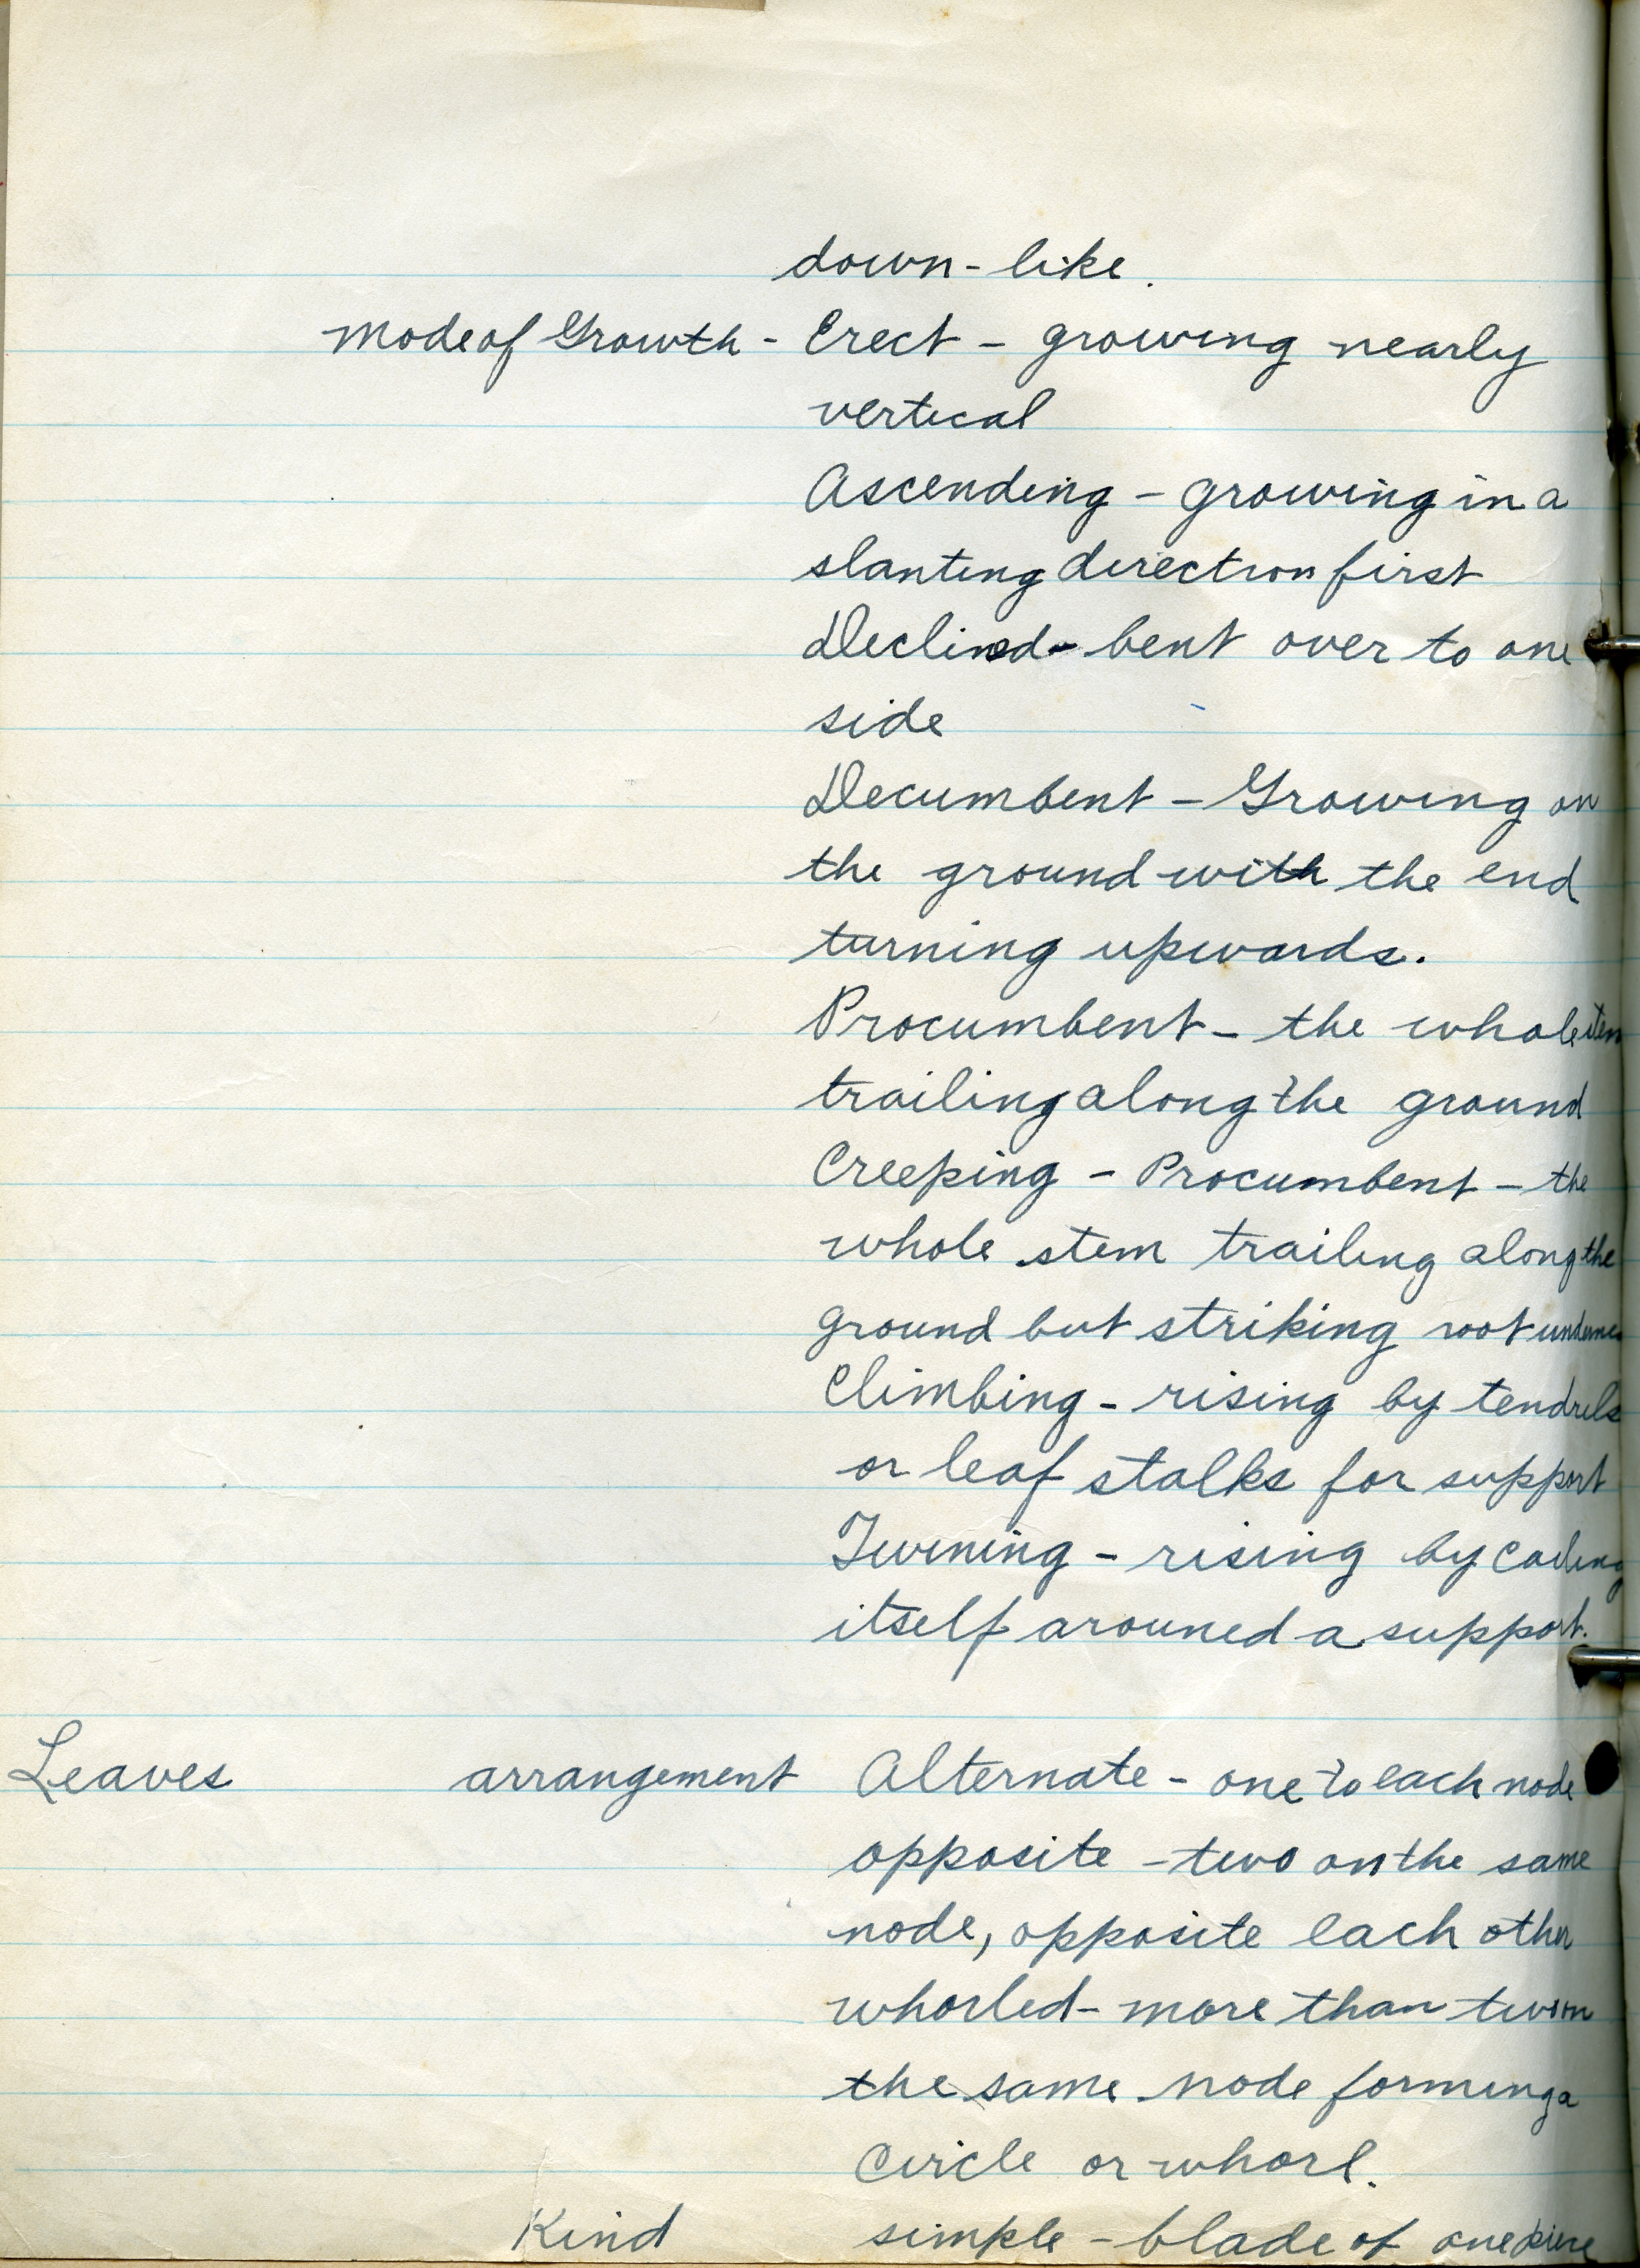 down-like.
Mode of Growth - Erect - growing nearly
vertical
Ascending - growing in a
slanting direction first
Declined - bent over to one
side
Decumbent - Growing on
the ground with the end
turning upwards.
Procumbent - the whole stem
trailing along the ground
Creeping - Procumbent - the
whole stem trailing along the
ground but striking root
Climbing - rising by tendrils
or leaf stalks for support
Twining - rising by coiling
itself arouned a support.
Leaves arrangement Alternate - one to each node
opposite - two on the same
node, opposite each other
whorled - more than two on
the same node forming a
circle or whorl.
Kind simple - blade of one piece